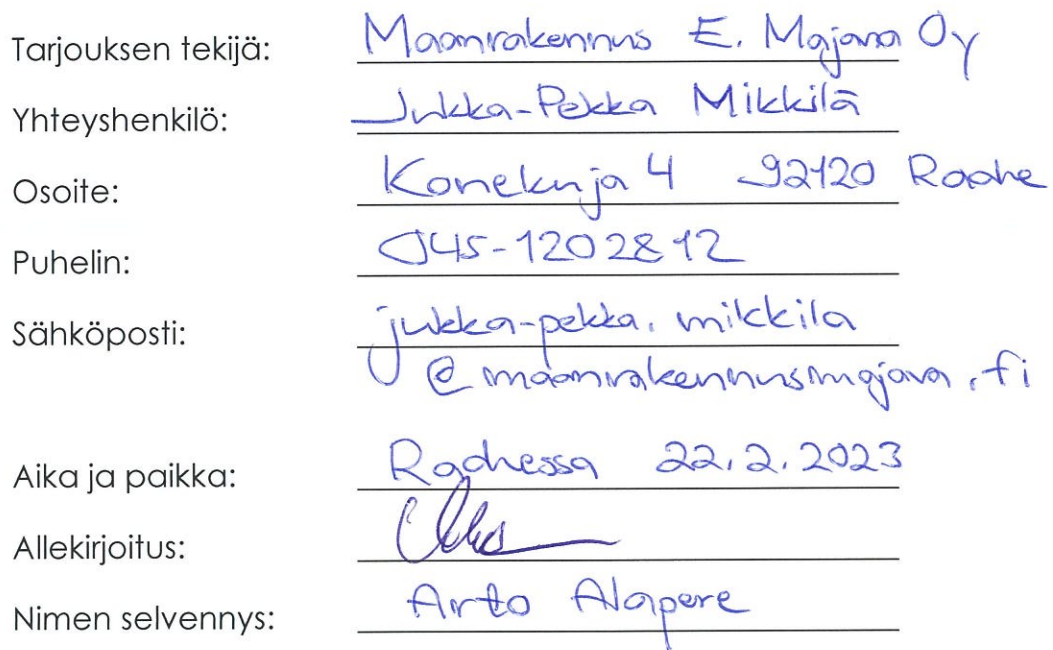 Tarjouksen tekijä: Maanrakennus E. Majava Oy
Yhteyshenkilö: Jukka-Pekka Mikkilä
Osoite: Konekuja 4 92120 Raahe
Puhelin: 045-1202812
Sähköposti: jukka-pekka.mikkila
@maanrakennusmajava.fi
Aika ja paikka: Raahessa 22.2.2023
Allekirjoitus:
Nimen selvennys: Arto Alapere